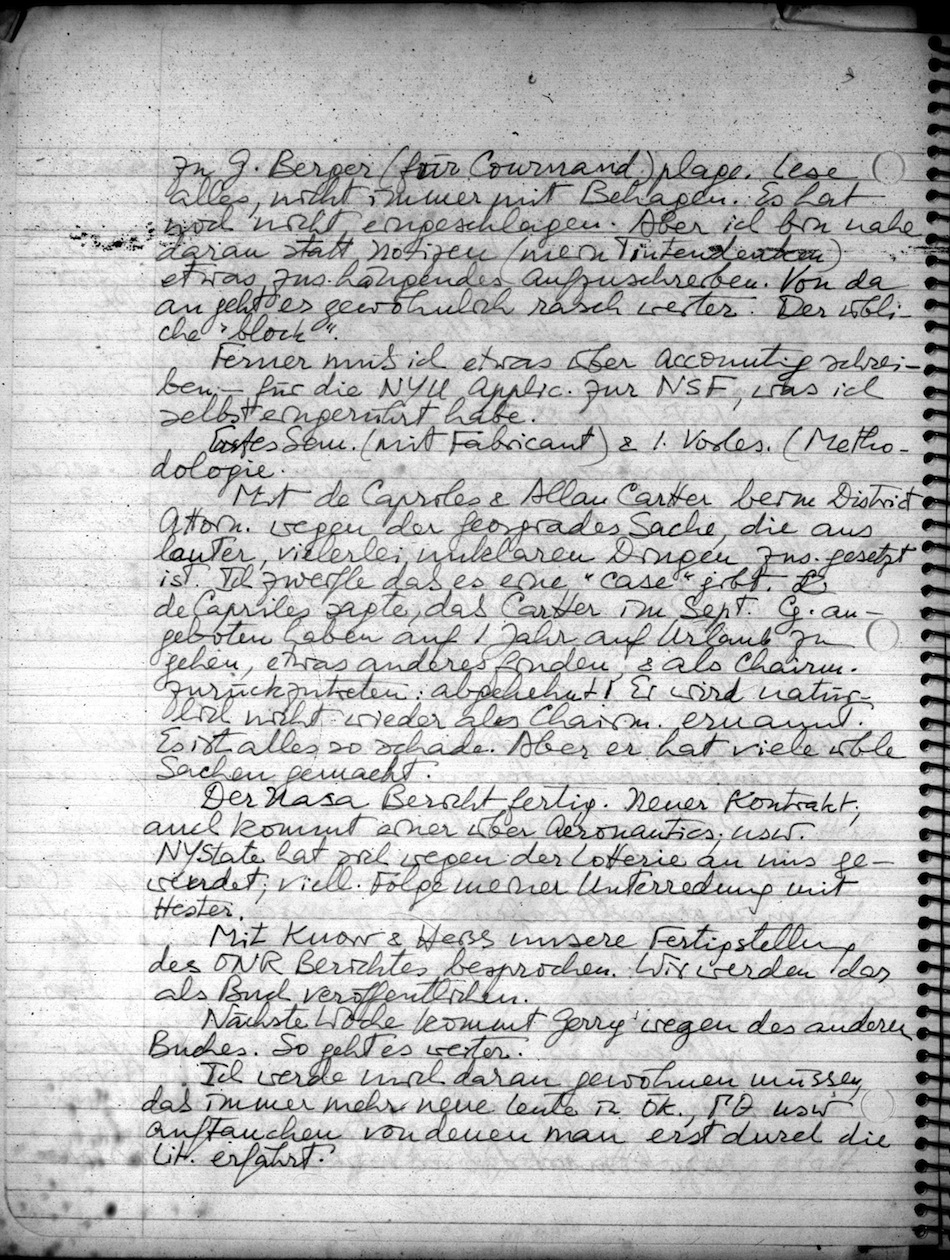 zu G. Berger (für Cournand) plage. Lese
alles, nicht immer mit Behagen. Es hat
noch nicht eingeschlagen. Aber ich bin nahe
daran statt Notizen (mein Tintendenken)
etwas zus. hängendes aufzuschreiben. Von da
an geht es gewöhnlich rasch weiter. Der übli-
che "block".
Ferner muß ich etwas über Accounting schrei-
ben – für die NYU Applic. zur NSF, was ich
selbst eingerührt habe.
Erstes Sem. (mit Fabricant) & 1. Vorles. (Metho-
dologie.
Mit de Capriles & Allan Cartter beim District
Attorn. wegen der Sache, die aus
lauter, vielerlei, unklaren Dingen zus. gesetzt
ist. Ich zweifle das es eine "case" gibt.
de Capriles sagte, daß Cartter im Sept. Cg. an-
geboten haben auf 1 Jahr auf Urlaub zu
gehen, etwas anderes finden & als Chairm.
zurückzutreten: abgelehnt! Er wird natür-
lich nicht wieder als Chairm. ernannt.
Es ist alles so schade. Aber er hat viele üble
Sachen gemacht.
Der Nasa Bericht fertig. Neuer Kontrakt;
auch kommt einer über Aeronautics; usw.
NYState hat sich wegen der Lotterie an uns ge-
wendet; viell. Folge meiner Unterredung mit
Hester.
Mit Knorr & Heiss unsere Fertigstellung
des ONR Berichtes besprochen. Wir werden das
als Buch veröffentlichen.
Nächste Woche kommt Gerry wegen des anderen
Buches. So geht es weiter.
Ich werde mich daran gewöhnen müssen
das immer mehr neue Leute in Ök., ΓΘ usw
auftauchen von denen man erst durch die
Lit. erfährt.